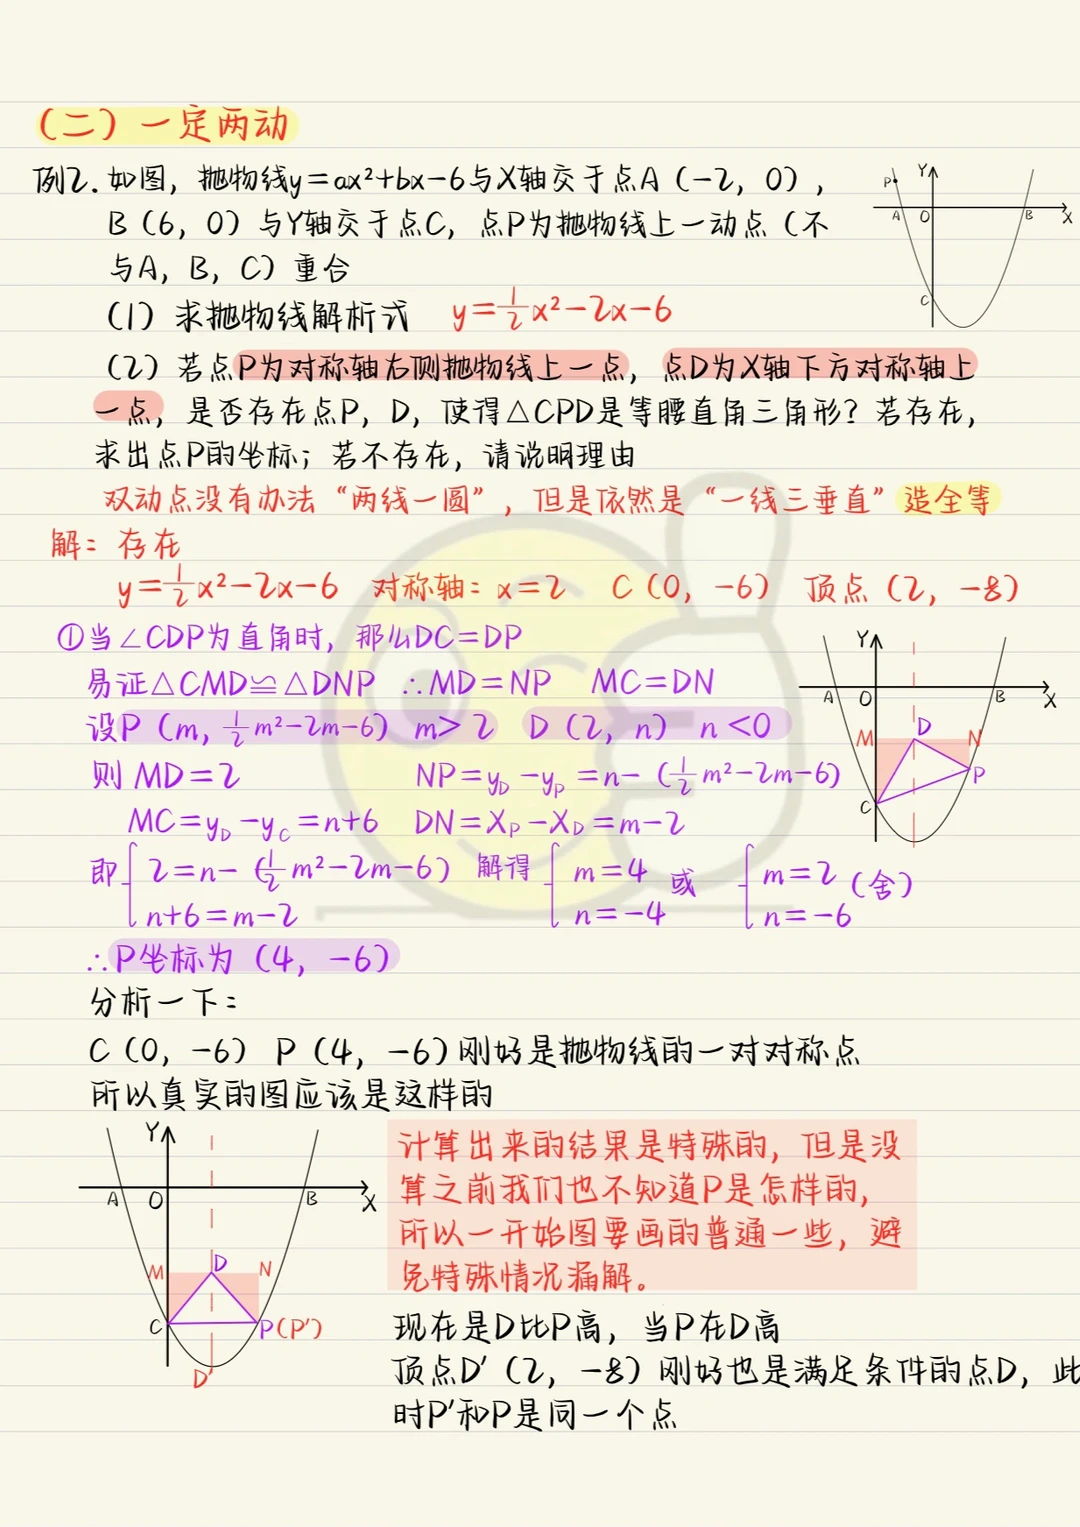 （二）一定两动
例2. 如图，抛物线y=ax²+bx-6与X轴交于点A（-2，0），
B（6，0）与Y轴交于点C，点P为抛物线上一动点（不
与A，B，C）重合
P Y
A O B X
C
（1）求抛物线解析式 y=½x²-2x-6
（2）若点P为对称轴右侧抛物线上一点，点D为X轴下方对称轴上
一点，是否存在点P，D，使得△CPD是等腰直角三角形？若存在，
求出点P的坐标；若不存在，请说明理由
双动点没有办法“两线一圆”，但是依然是“一线三垂直”造全等
解：存在
y=½x²-2x-6 对称轴：x=2 C（0，-6） 顶点（2，-8）
①当∠CDP为直角时，那么DC=DP
易证△CMD≌△DNP ∴MD=NP MC=DN
设P（m，½m²-2m-6）m>2 D（2，n）n<0
则MD=2 NP=y_D-y_P=n-（½m²-2m-6）
MC=y_D-y_C=n+6 DN=X_P-X_D=m-2
Y
A O B X
M D N
P
C
即{2=n-（½m²-2m-6） 解得{m=4 或 {m=2（舍）
n+6=m-2 n=-4 n=-6
∴P坐标为（4，-6）
分析一下：
C（0，-6）P（4，-6）刚好是抛物线的一对对称点
所以真实的图应该是这样的
Y
A O B X
M D N
C P(P′)
D′
计算出来的结果是特殊的，但是没
算之前我们也不知道P是怎样的，
所以一开始图要画的普通一些，避
免特殊情况漏解。
现在是D比P高，当P在D高
顶点D′（2，-8）刚好也是满足条件的点D，此
时P′和P是同一个点